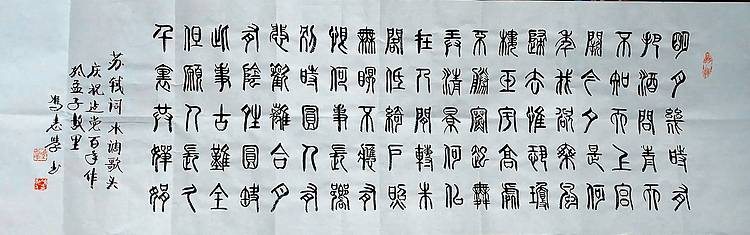 明月幾時有
把酒問青天
不知天上宮
闕今夕是何
年我欲乘風
歸去惟恐瓊
樓玉宇高處
不勝寒起舞
弄清影何似
在人間轉朱
閣低綺戶照
無眠不應有
恨何事長嚮
別時圓人有
悲歡離合月
有陰晴圓缺
此事古難全
但願人長久
千里共嬋娟
苏轼词水调歌头
庆祝建党百年作
於孟子故里
书